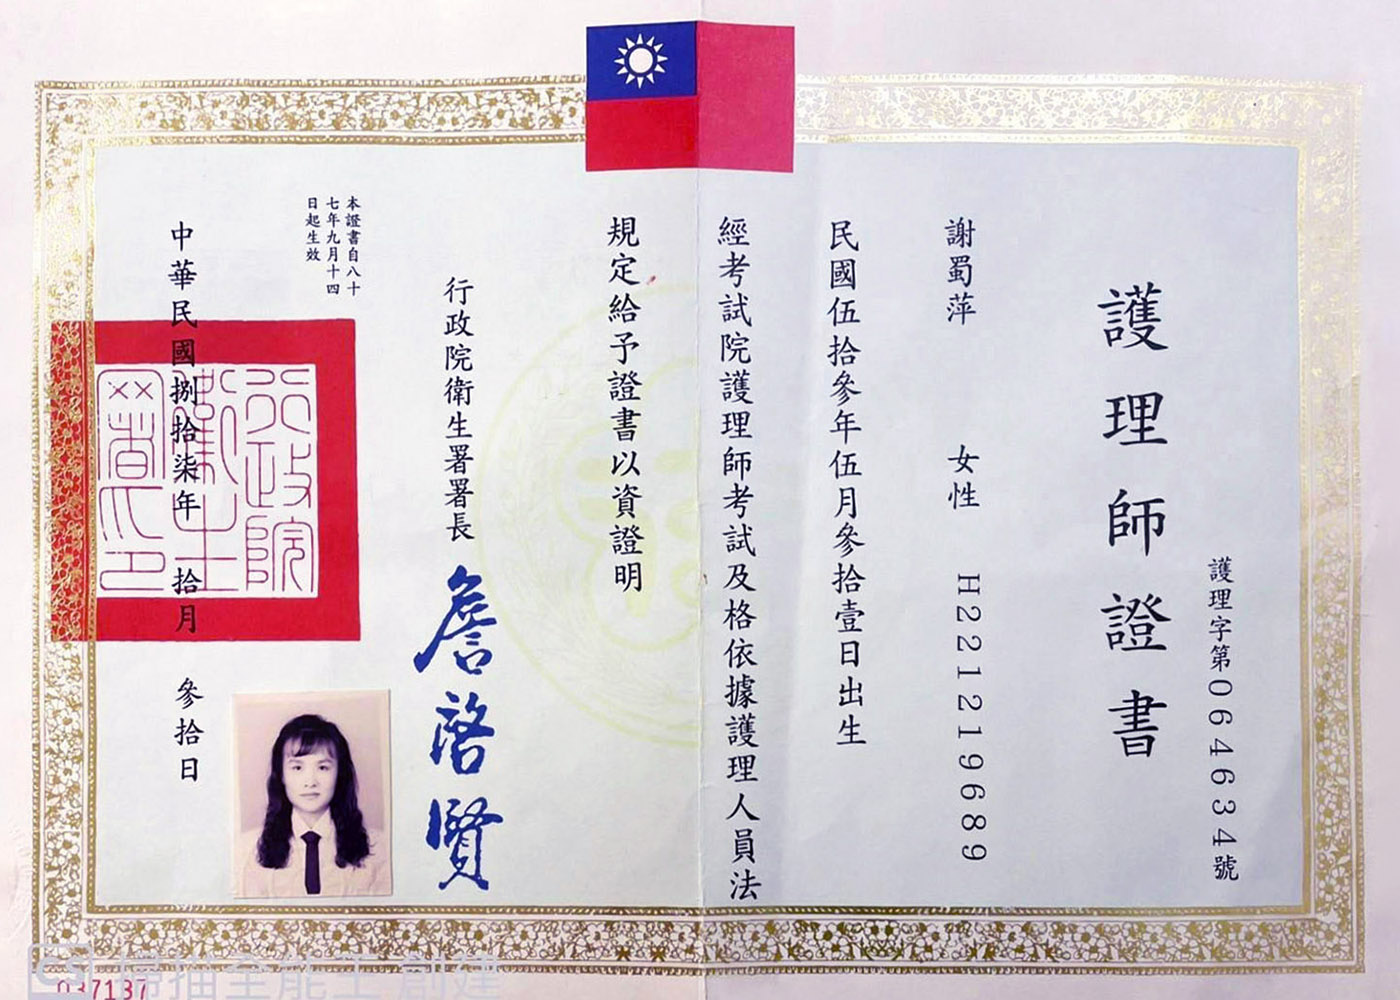 護理字第064634號
護理師證書
謝蜀萍 女性 H221219689
民國伍拾參年伍月參拾壹日出生
經考試院護理師考試及格依據護理人員法
規定給予證書以資證明
行政院衛生署署長 詹啓賢
本證書自八十
七年九月十四
日起生效
中華民國捌拾柒年 拾月 參拾日
行政院
衛生
署印
037137
CS 掃描全能王 創建